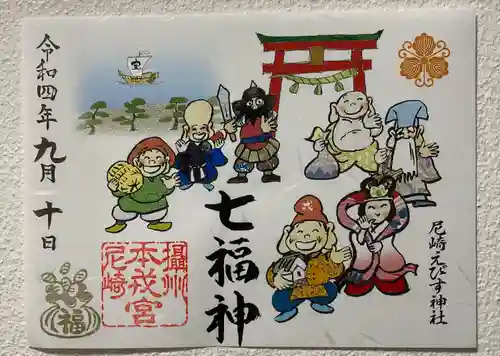 七福神
尼崎えびす神社
令和四年九月十日
攝州
本戎宮
尼崎
福